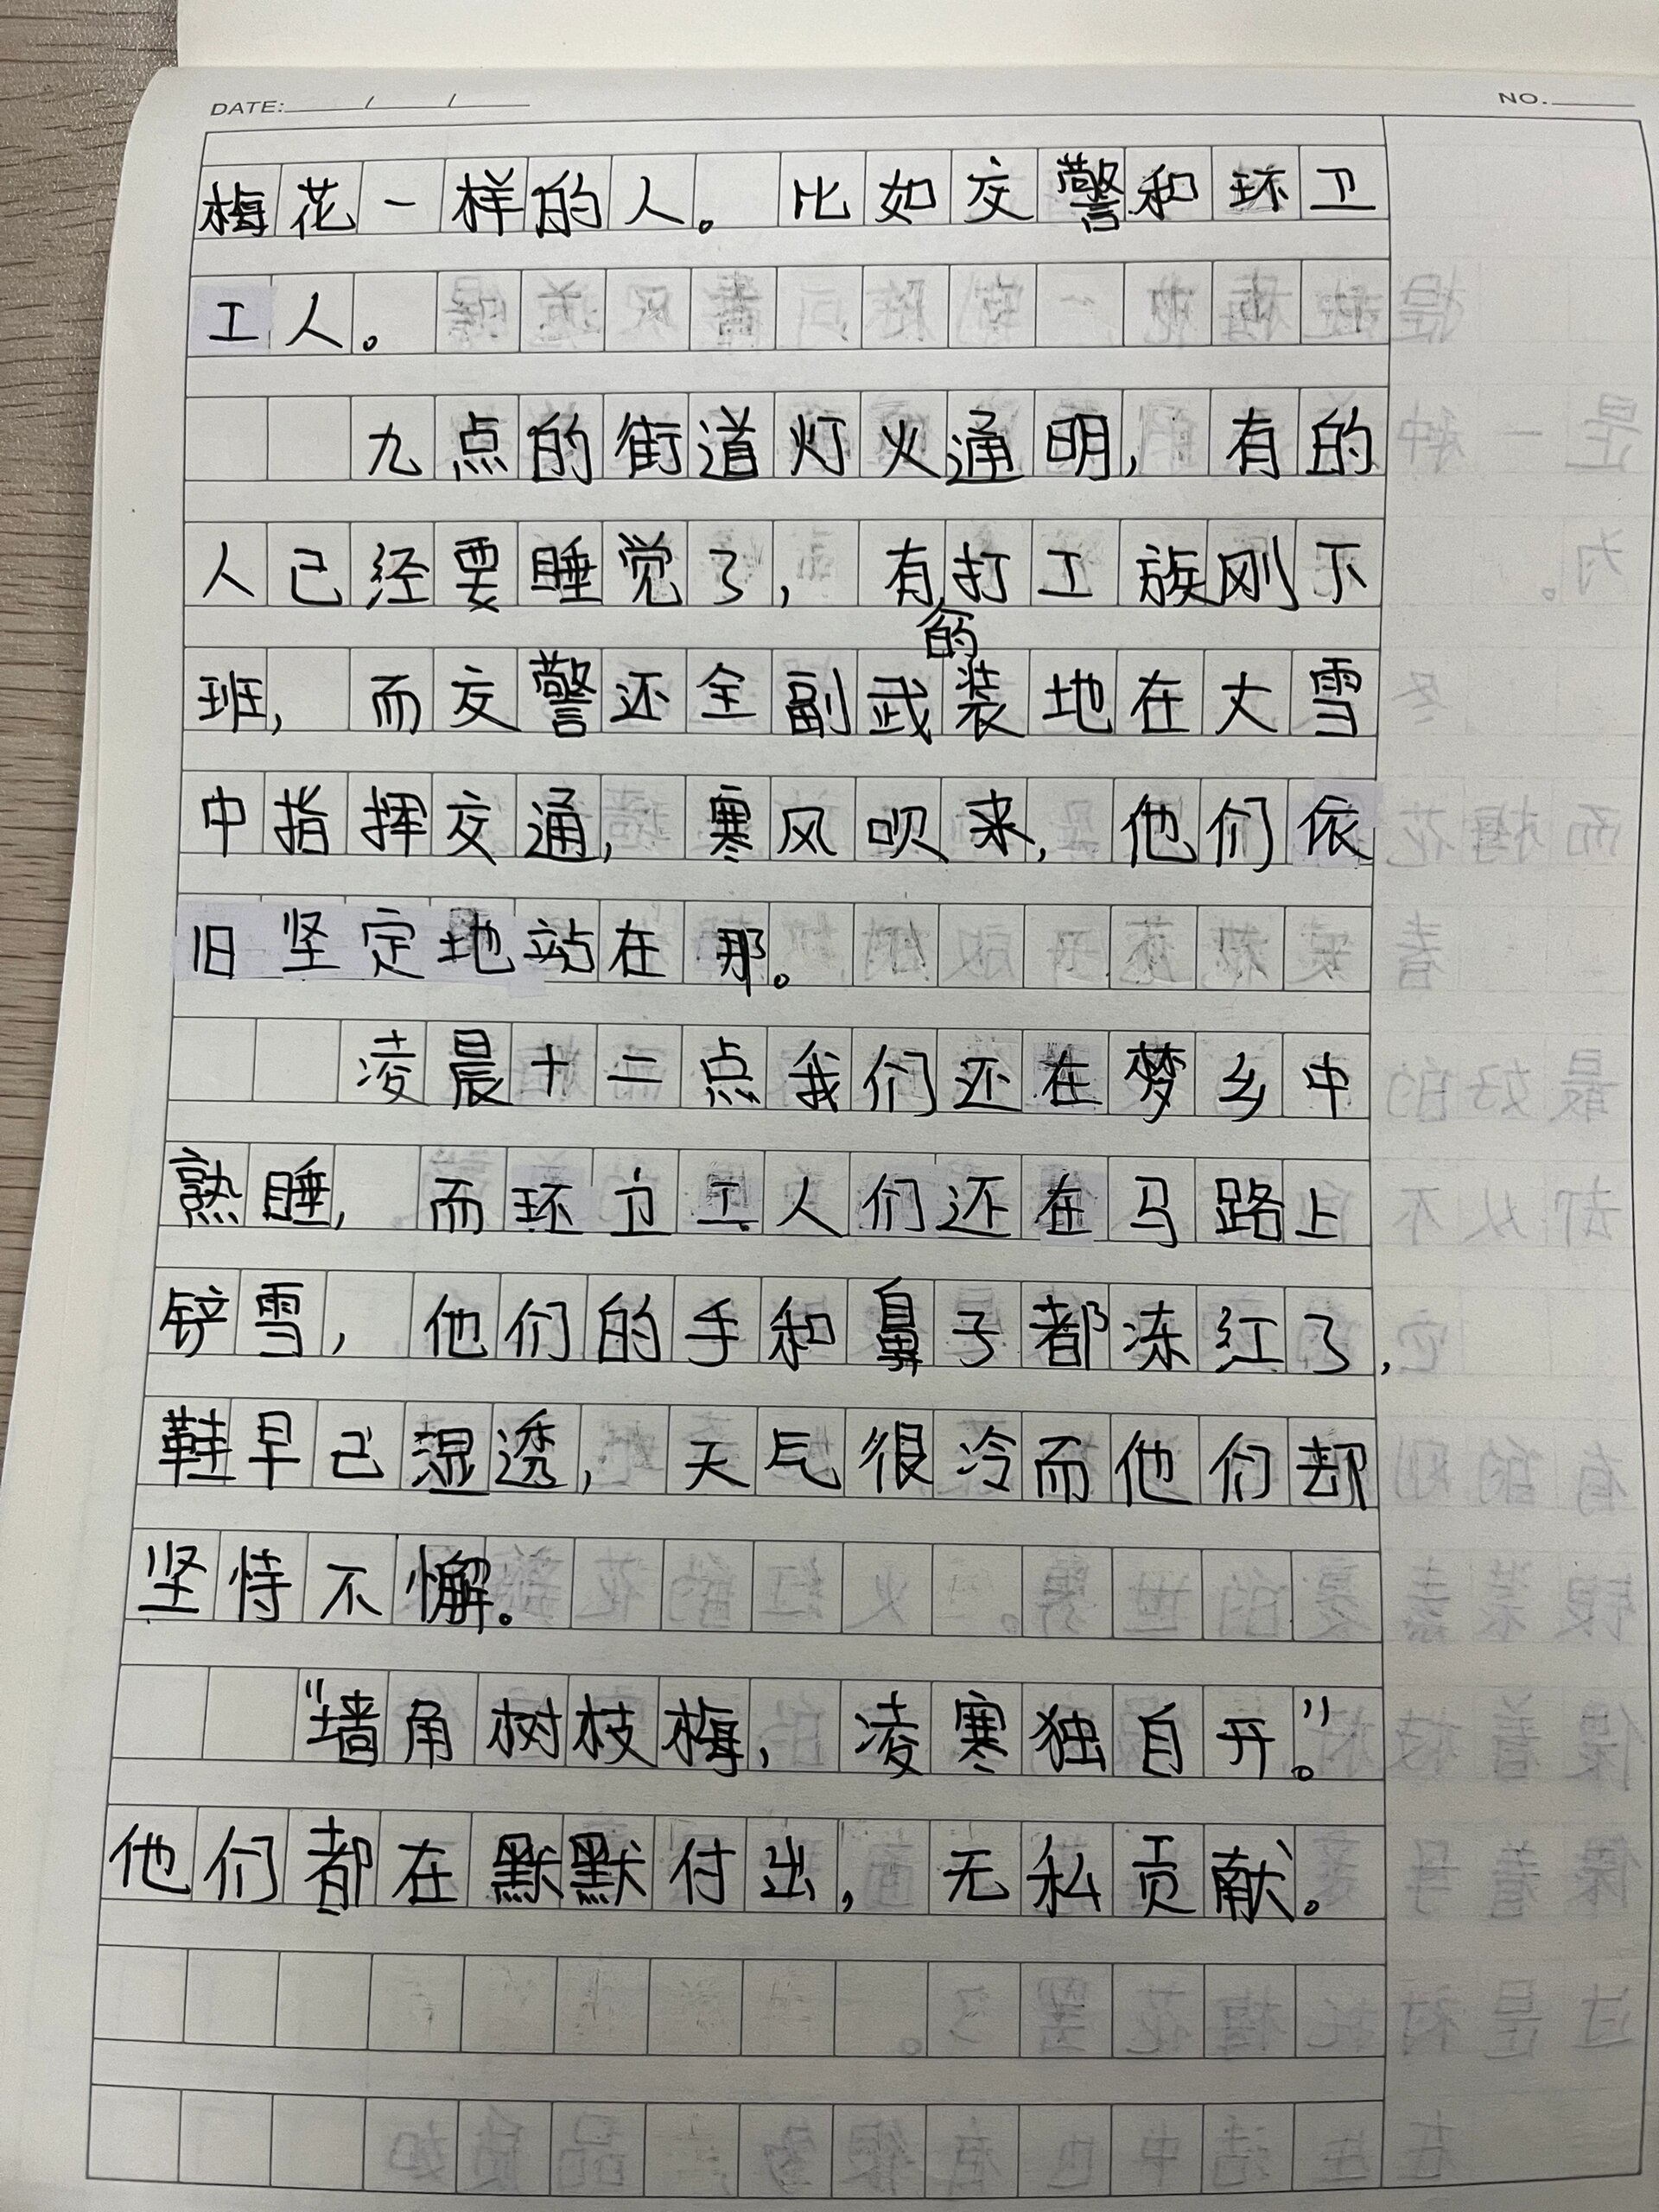 DATE: / /
NO.
梅花一样的人。比如交警和环卫
工人。
九点的街道灯火通明，有的
人已经要睡觉了，有的打工族刚下
班，而交警还全副武装地在大雪
中指挥交通，寒风吹来，他们依
旧坚定地站在那。
凌晨十二点我们还在梦乡中
熟睡，而环卫工人们还在马路上
铲雪，他们的手和鼻子都冻红了，
鞋早已湿透，天气很冷而他们却
坚持不懈。
“墙角树枝梅，凌寒独自开。”
他们都在默默付出，无私贡献。